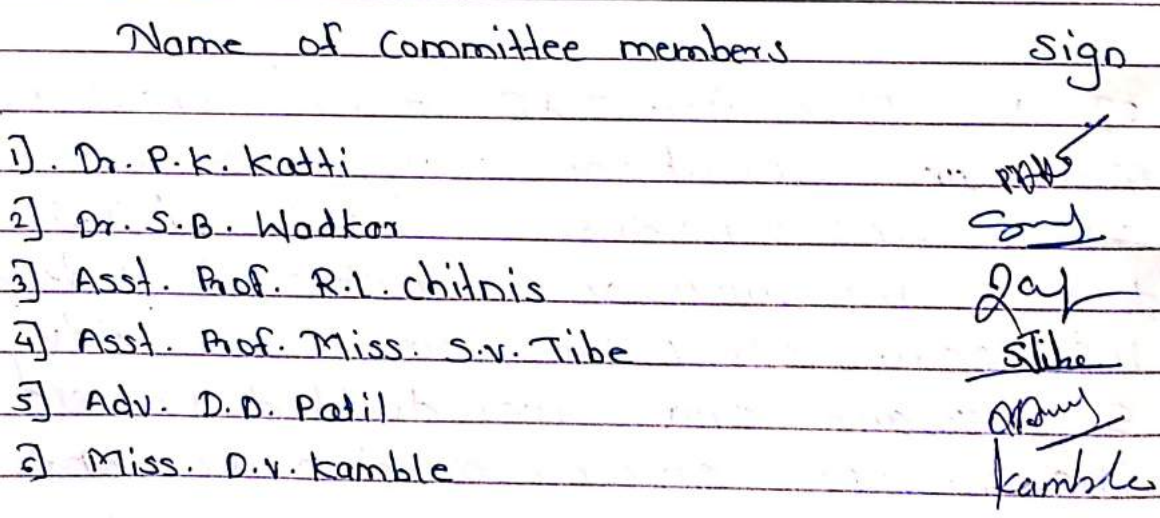 Name of Committee members Sign
1]. Dr. P.K. Katti
2] Dr. S.B. Wadkar
3] Asst. Prof. R.L. Chitnis
4] Asst. Prof. Miss. S.V. Tibe STibe
5] Adv. D.D. Patil
6] Miss. D.V. Kamble Kamble